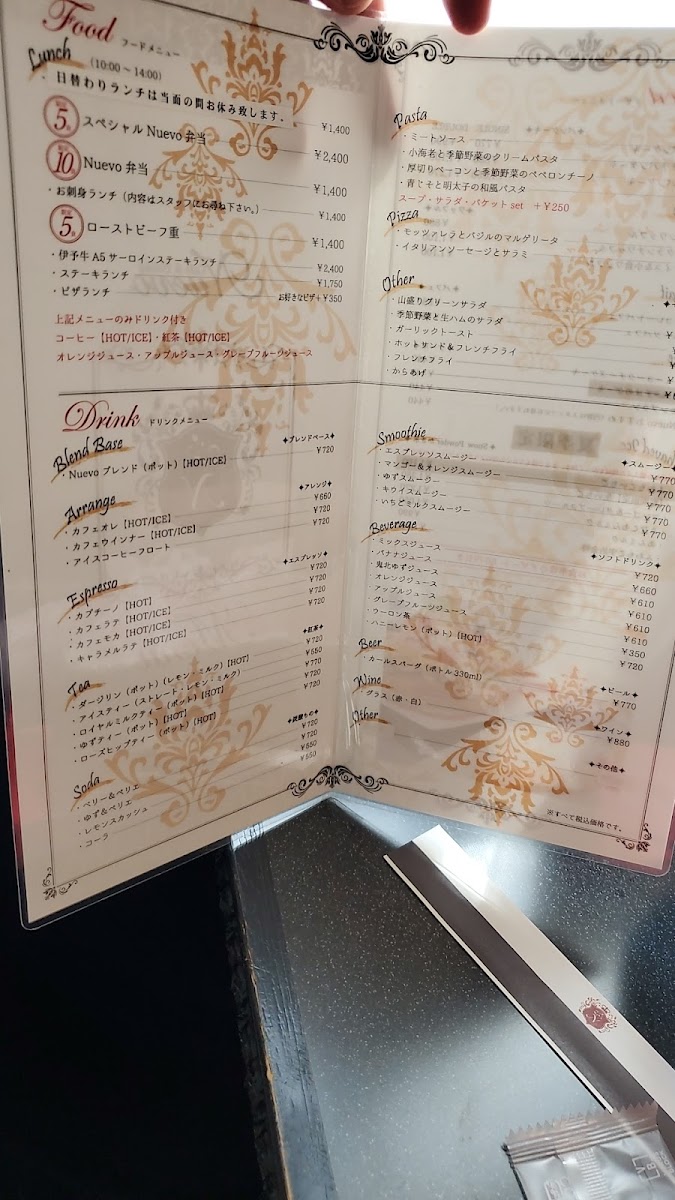 Food フードメニュー
Lunch (10:00～14:00)
・日替わりランチは当面の間お休み致します。 ¥1,400
限定5食 スペシャル Nuevo 弁当 ¥2,400
限定10食 Nuevo 弁当 ¥1,400
・お刺身ランチ（内容はスタッフにお尋ね下さい。） ¥1,400
限定5食 ローストビーフ重 ¥1,400
・伊予牛 A5 サーロインステーキランチ ¥2,400
・ステーキランチ ¥1,750
・ピザランチ お好きなピザ+¥350
上記メニューのみドリンク付き
コーヒー【HOT/ICE】・紅茶【HOT/ICE】
オレンジジュース・アップルジュース・グレープフルーツジュース
Pasta
・ミートソース
・小海老と季節野菜のクリームパスタ
・厚切りベーコンと季節野菜のペペロンチーノ
・青じそと明太子の和風パスタ
スープ・サラダ・バケット set +¥250
Pizza
・モッツァレラとバジルのマルゲリータ
・イタリアンソーセージとサラミ
Other
・山盛りグリーンサラダ
・季節野菜と生ハムのサラダ
・ガーリックトースト
・ホットサンド＆フレンチフライ
・フレンチフライ
・からあげ
Drink ドリンクメニュー
Blend Base ◆ブレンドベース◆
・Nuevo ブレンド（ポット）【HOT/ICE】 ¥720
Arrange ◆アレンジ◆
・カフェオレ【HOT/ICE】 ¥660
・カフェウインナー【HOT/ICE】 ¥720
・アイスコーヒーフロート ¥720
Espresso ◆エスプレッソ◆
・カプチーノ【HOT】 ¥720
・カフェラテ【HOT/ICE】 ¥720
・カフェモカ【HOT/ICE】 ¥720
・キャラメルラテ【HOT/ICE】 ¥720
Tea ◆紅茶◆
・ダージリン（ポット）（レモン・ミルク）【HOT】 ¥720
・アイスティー（ストレート・レモン・ミルク） ¥550
・ロイヤルミルクティー（ポット）【HOT】 ¥770
・ゆずティー（ポット）【HOT】 ¥720
・ローズヒップティー（ポット）【HOT】 ¥720
Soda ◆炭酸もの◆
・ベリー＆ペリエ ¥720
・ゆず＆ペリエ ¥720
・レモンスカッシュ ¥550
・コーラ ¥550
Smoothie ◆スムージー◆
・エスプレッソスムージー ¥770
・マンゴー＆オレンジスムージー ¥770
・ゆずスムージー ¥770
・キウイスムージー ¥770
・いちごミルクスムージー ¥770
Beverage ◆ソフトドリンク◆
・ミックスジュース ¥720
・バナナジュース ¥660
・鬼北ゆずジュース ¥610
・オレンジジュース ¥610
・アップルジュース ¥610
・グレープフルーツジュース ¥610
・ウーロン茶 ¥350
・ハニーレモン（ポット）【HOT】 ¥720
Beer ◆ビール◆
・カールスバーグ（ボトル 330ml） ¥770
Wine ◆ワイン◆
・グラス（赤・白） ¥880
Other ◆その他◆
※すべて税込価格です。